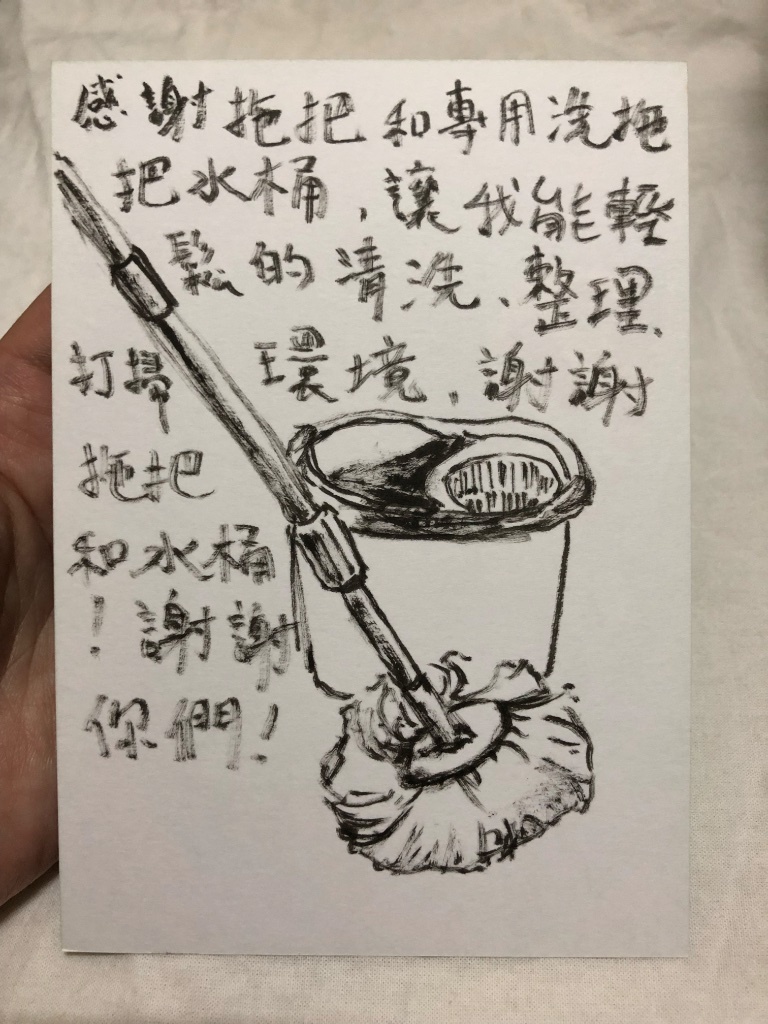 感謝拖把和專用洗拖
把水桶,讓我能輕
鬆的清洗、整理、
打掃環境,謝謝
拖把
和水桶
!謝謝
你們!